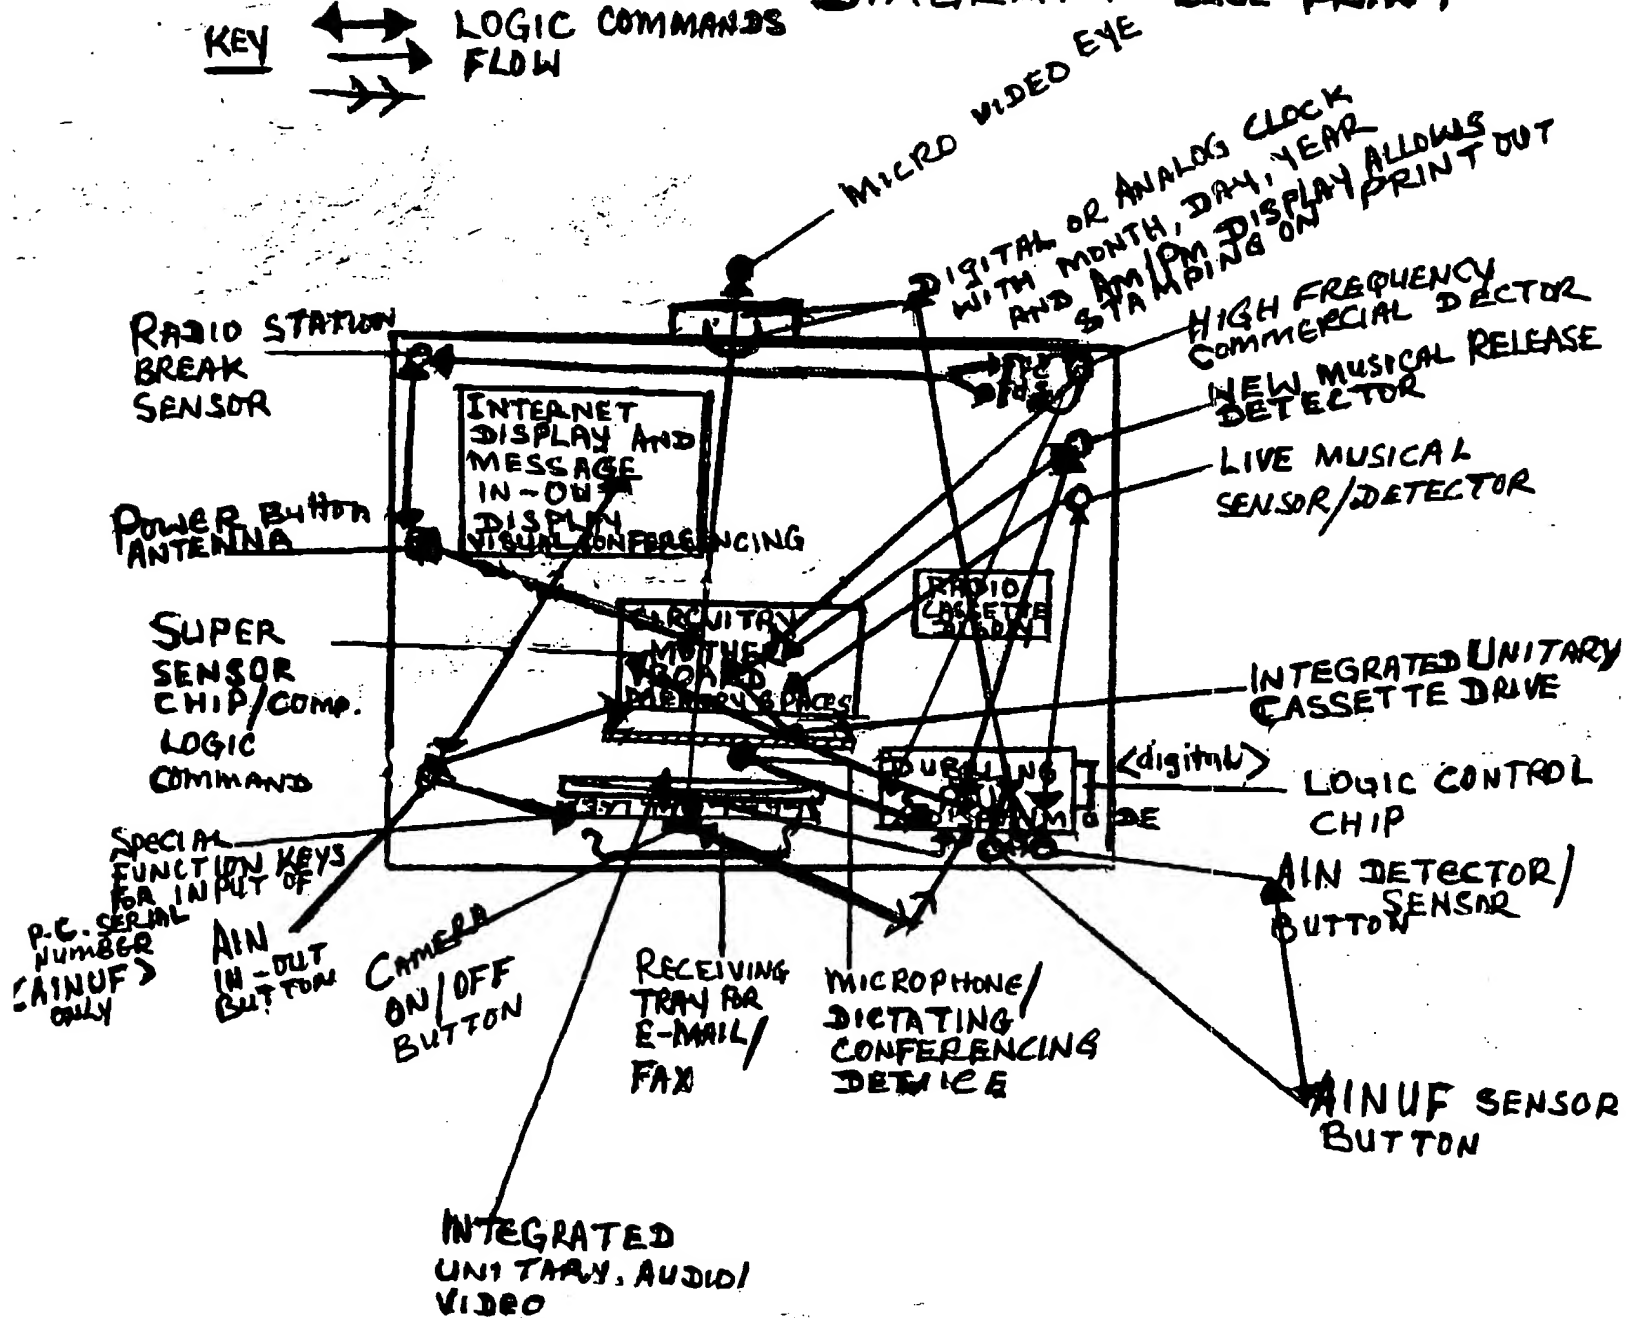 KEY
LOGIC COMMANDS
FLOW
MICRO VIDEO EYE
DIGITAL OR ANALOG CLOCK
WITH MONTH, DAY, YEAR
AND AM/PM DISPLAY ALLOWS
STAMPING ON PRINT OUT
HIGH FREQUENCY
COMMERCIAL DECTOR
NEW MUSICAL RELEASE
DETECTOR
LIVE MUSICAL
SENSOR/DETECTOR
RADIO STATION
BREAK
SENSOR
INTERNET
DISPLAY AND
MESSAGE
IN-OUT
DISPLAY
VISUAL CONFERENCING
POWER Button
ANTENNA
RADIO
CASSETTE
DISPLAY
CIRCUITRY
MOTHER
BOARD
MEMORY SPACES
SUPER
SENSOR
CHIP/COMP.
LOGIC
COMMAND
INTEGRATED UNITARY
CASSETTE DRIVE
<digital>
LOGIC CONTROL
CHIP
SPECIAL
FUNCTION KEYS
FOR INPUT OF
P.C. SERIAL
NUMBER
<AINUF>
ONLY
AIN
IN-OUT
BUTTON
CAMERA
ON/OFF
BUTTON
RECEIVING
TRAY FOR
E-MAIL/
FAX
MICROPHONE/
DICTATING/
CONFERENCING
DEVICE
AIN DETECTOR/
SENSOR
BUTTON
AINUF SENSOR
BUTTON
INTEGRATED
UNITARY, AUDIO/
VIDEO